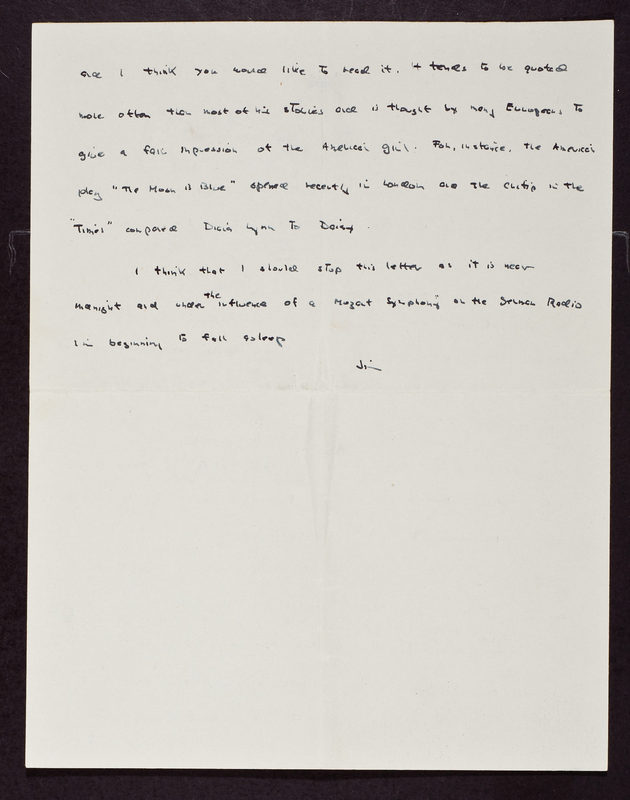 and I think you would like to read it. It tends to be quoted
more often than most of his stories and is thought by many Europeans to
give a fair impression of the American girl. For, instance, the American
play "The Moon is Blue" opened recently in London and the critic in the
"Times" compared Diana Lynn to Daisy.
I think that I should stop this letter as it is near
midnight and under the influence of a Mozart Symphony on the German Radio
I'm beginning to fall asleep
Jim